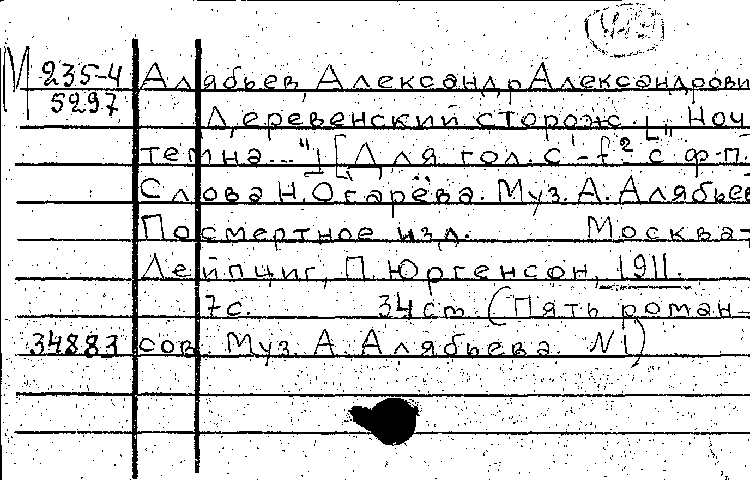 М 235-4 Алябьев, Александр Александрови
5297 Деревенский сторож. [„Ноч
темна..."] [Для гол. c¹-f² с ф-п.
Слова Н. Огарёва. Муз. А. Алябье
Посмертное изд. Москва-
Лейпциг, П. Юргенсон, 1911.
7с. 34 см (Пять роман-
34883 сов. Муз. А. Алябьева. N1)